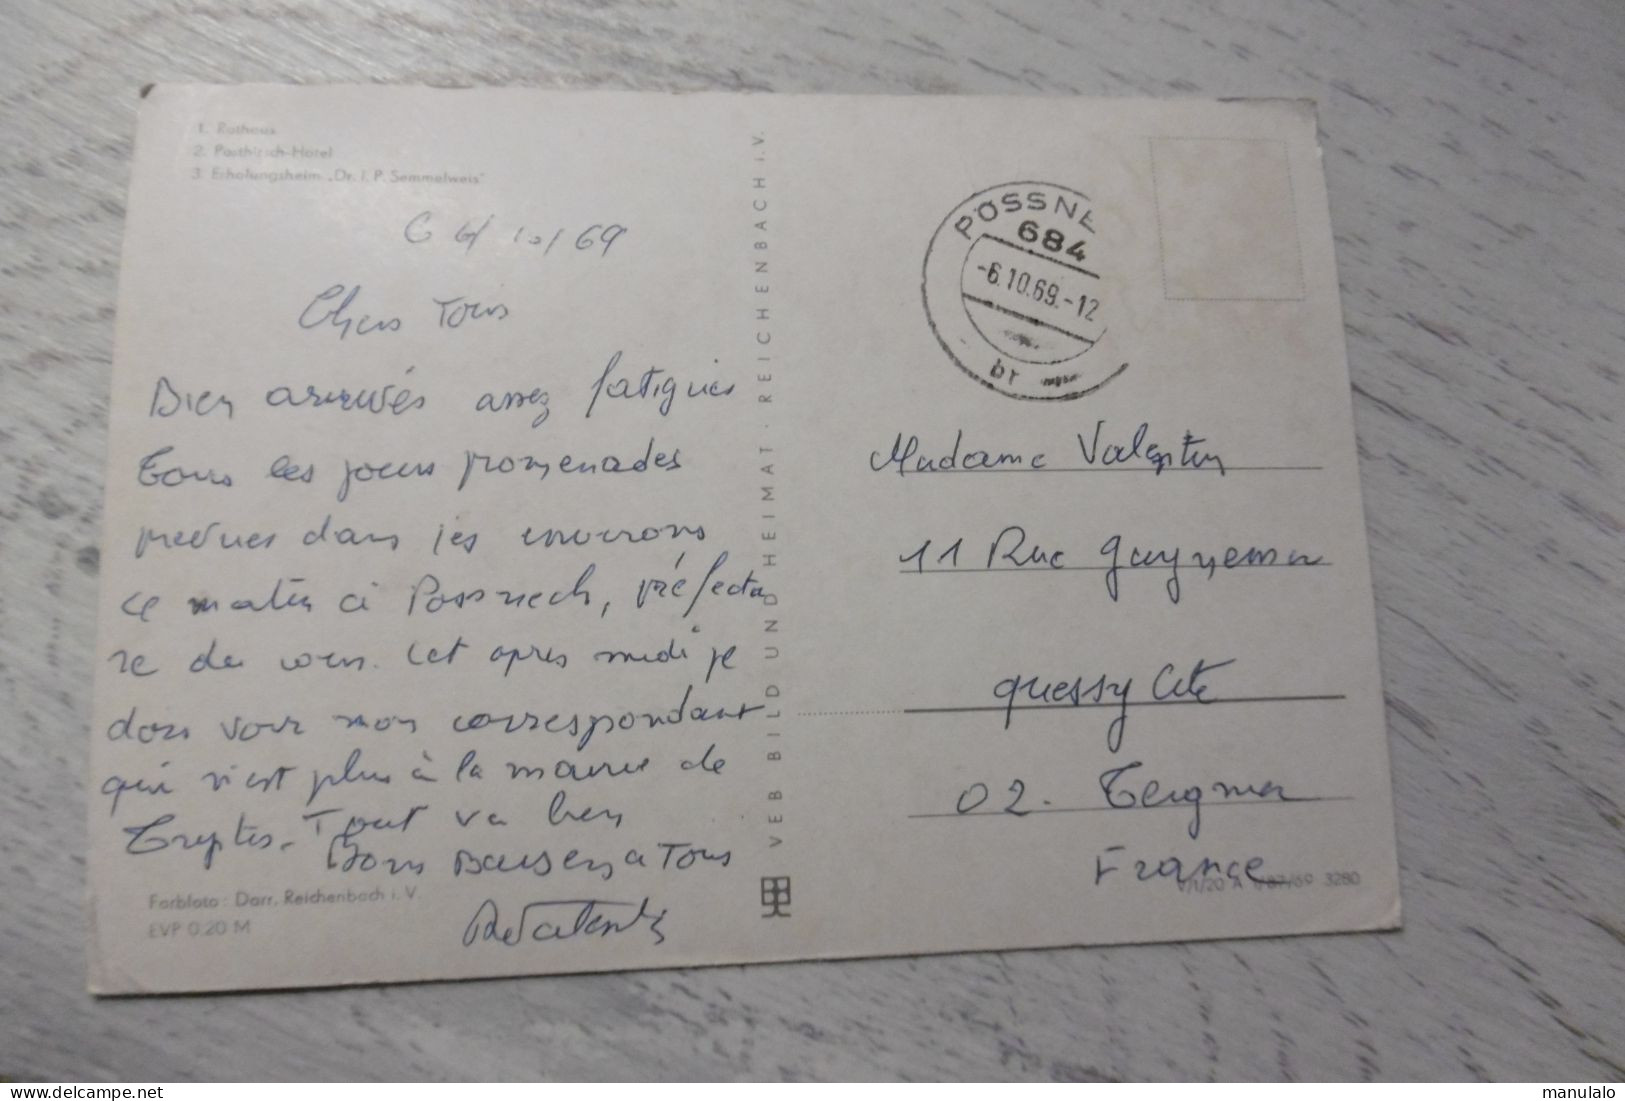 1. Rathaus
2. Posthirsch-Hotel
3. Erholungsheim „Dr. I. P. Semmelweis"
6/10/69
Chers Tous
Bien arrivés assez fatigués
Tous les jours promenades
prevues dans les environs
ce matin à Possneck, préfectu
re du coin. Cet apres midi je
dois voir mon correspondant
qui n'est plus à la mairie de
Triptis. Tout va bien
Bons Baisers a Tous
Farbfoto: Darr, Reichenbach i. V.
EVP 0.20 M
VEB BILD UND HEIMAT · REICHENBACH i. V.
PÖSSNE
684
-6.10.69.-12
br
Madame Valentin
11 Rue Guynemer
Quessy Cité
02. Tergnier
France
V/1/20 A 1/87/69 3280
manulalo